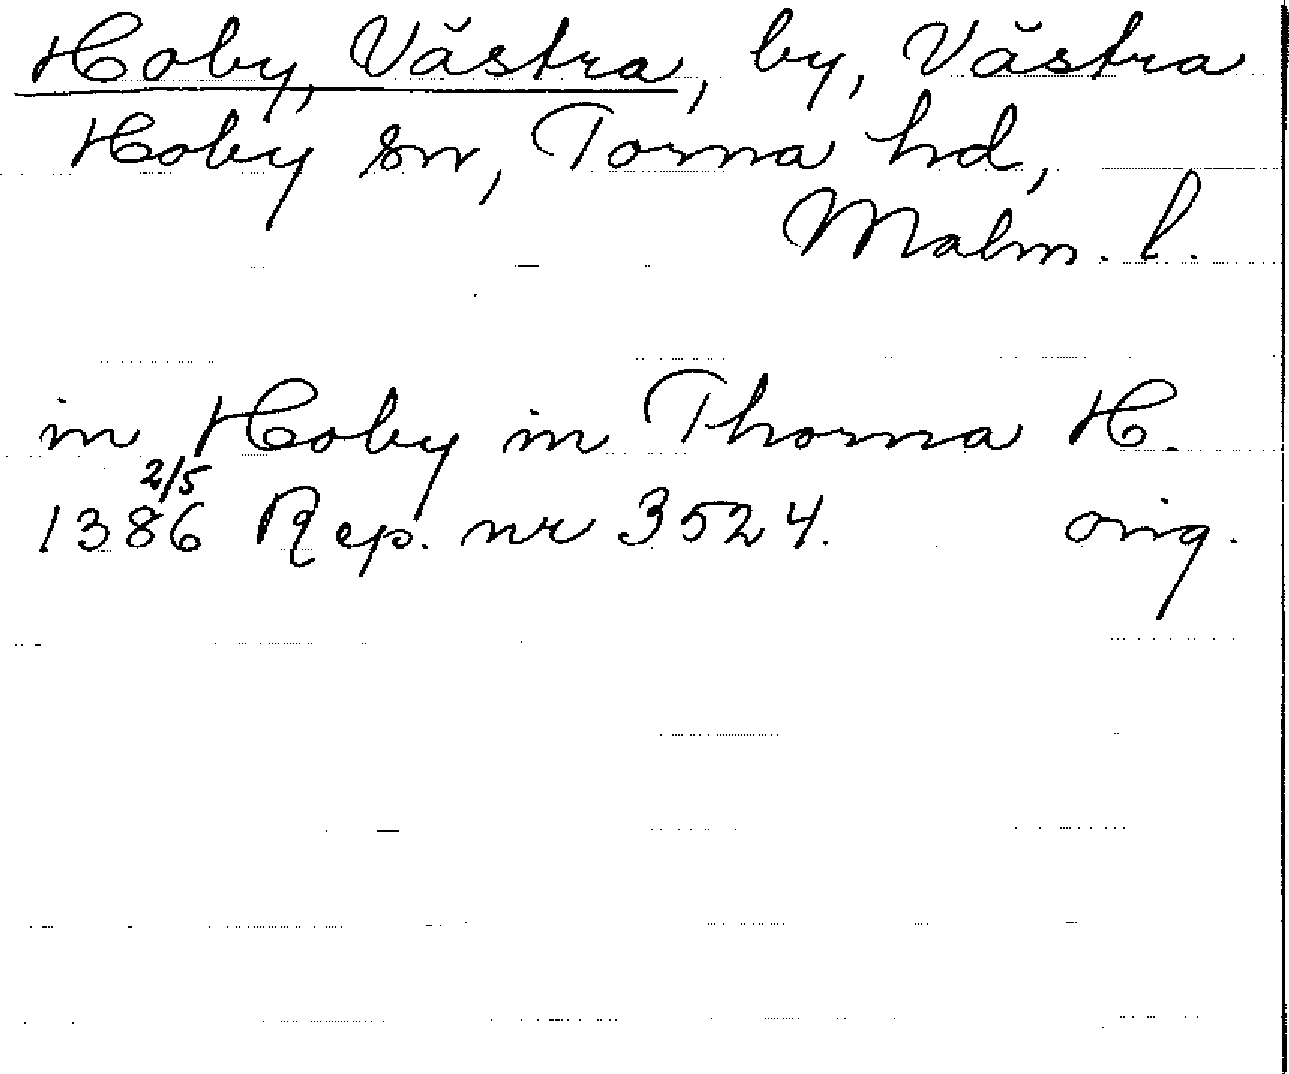 Hoby, Västra, by, Västra
Hoby sn, Torna hd,
Malm. l.
in Hoby in Thorna H.
2/5
1386 Rep. nr 3524. orig.